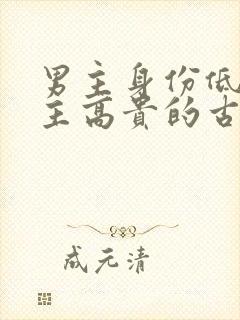 男主身份低
主高贵的古
成元清